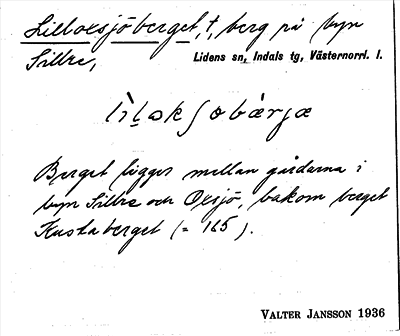 Lilloxsjöberget, t, berg på byn
Sillre,
Lidens sn, Indals tg, Västernorrl. l.
lìḷəkʃobàrjæ
Berget ligger mellan gårdarna i
byn Sillre och Oxsjö, bakom berget
Kustaberget (= 165).
VALTER JANSSON 1936